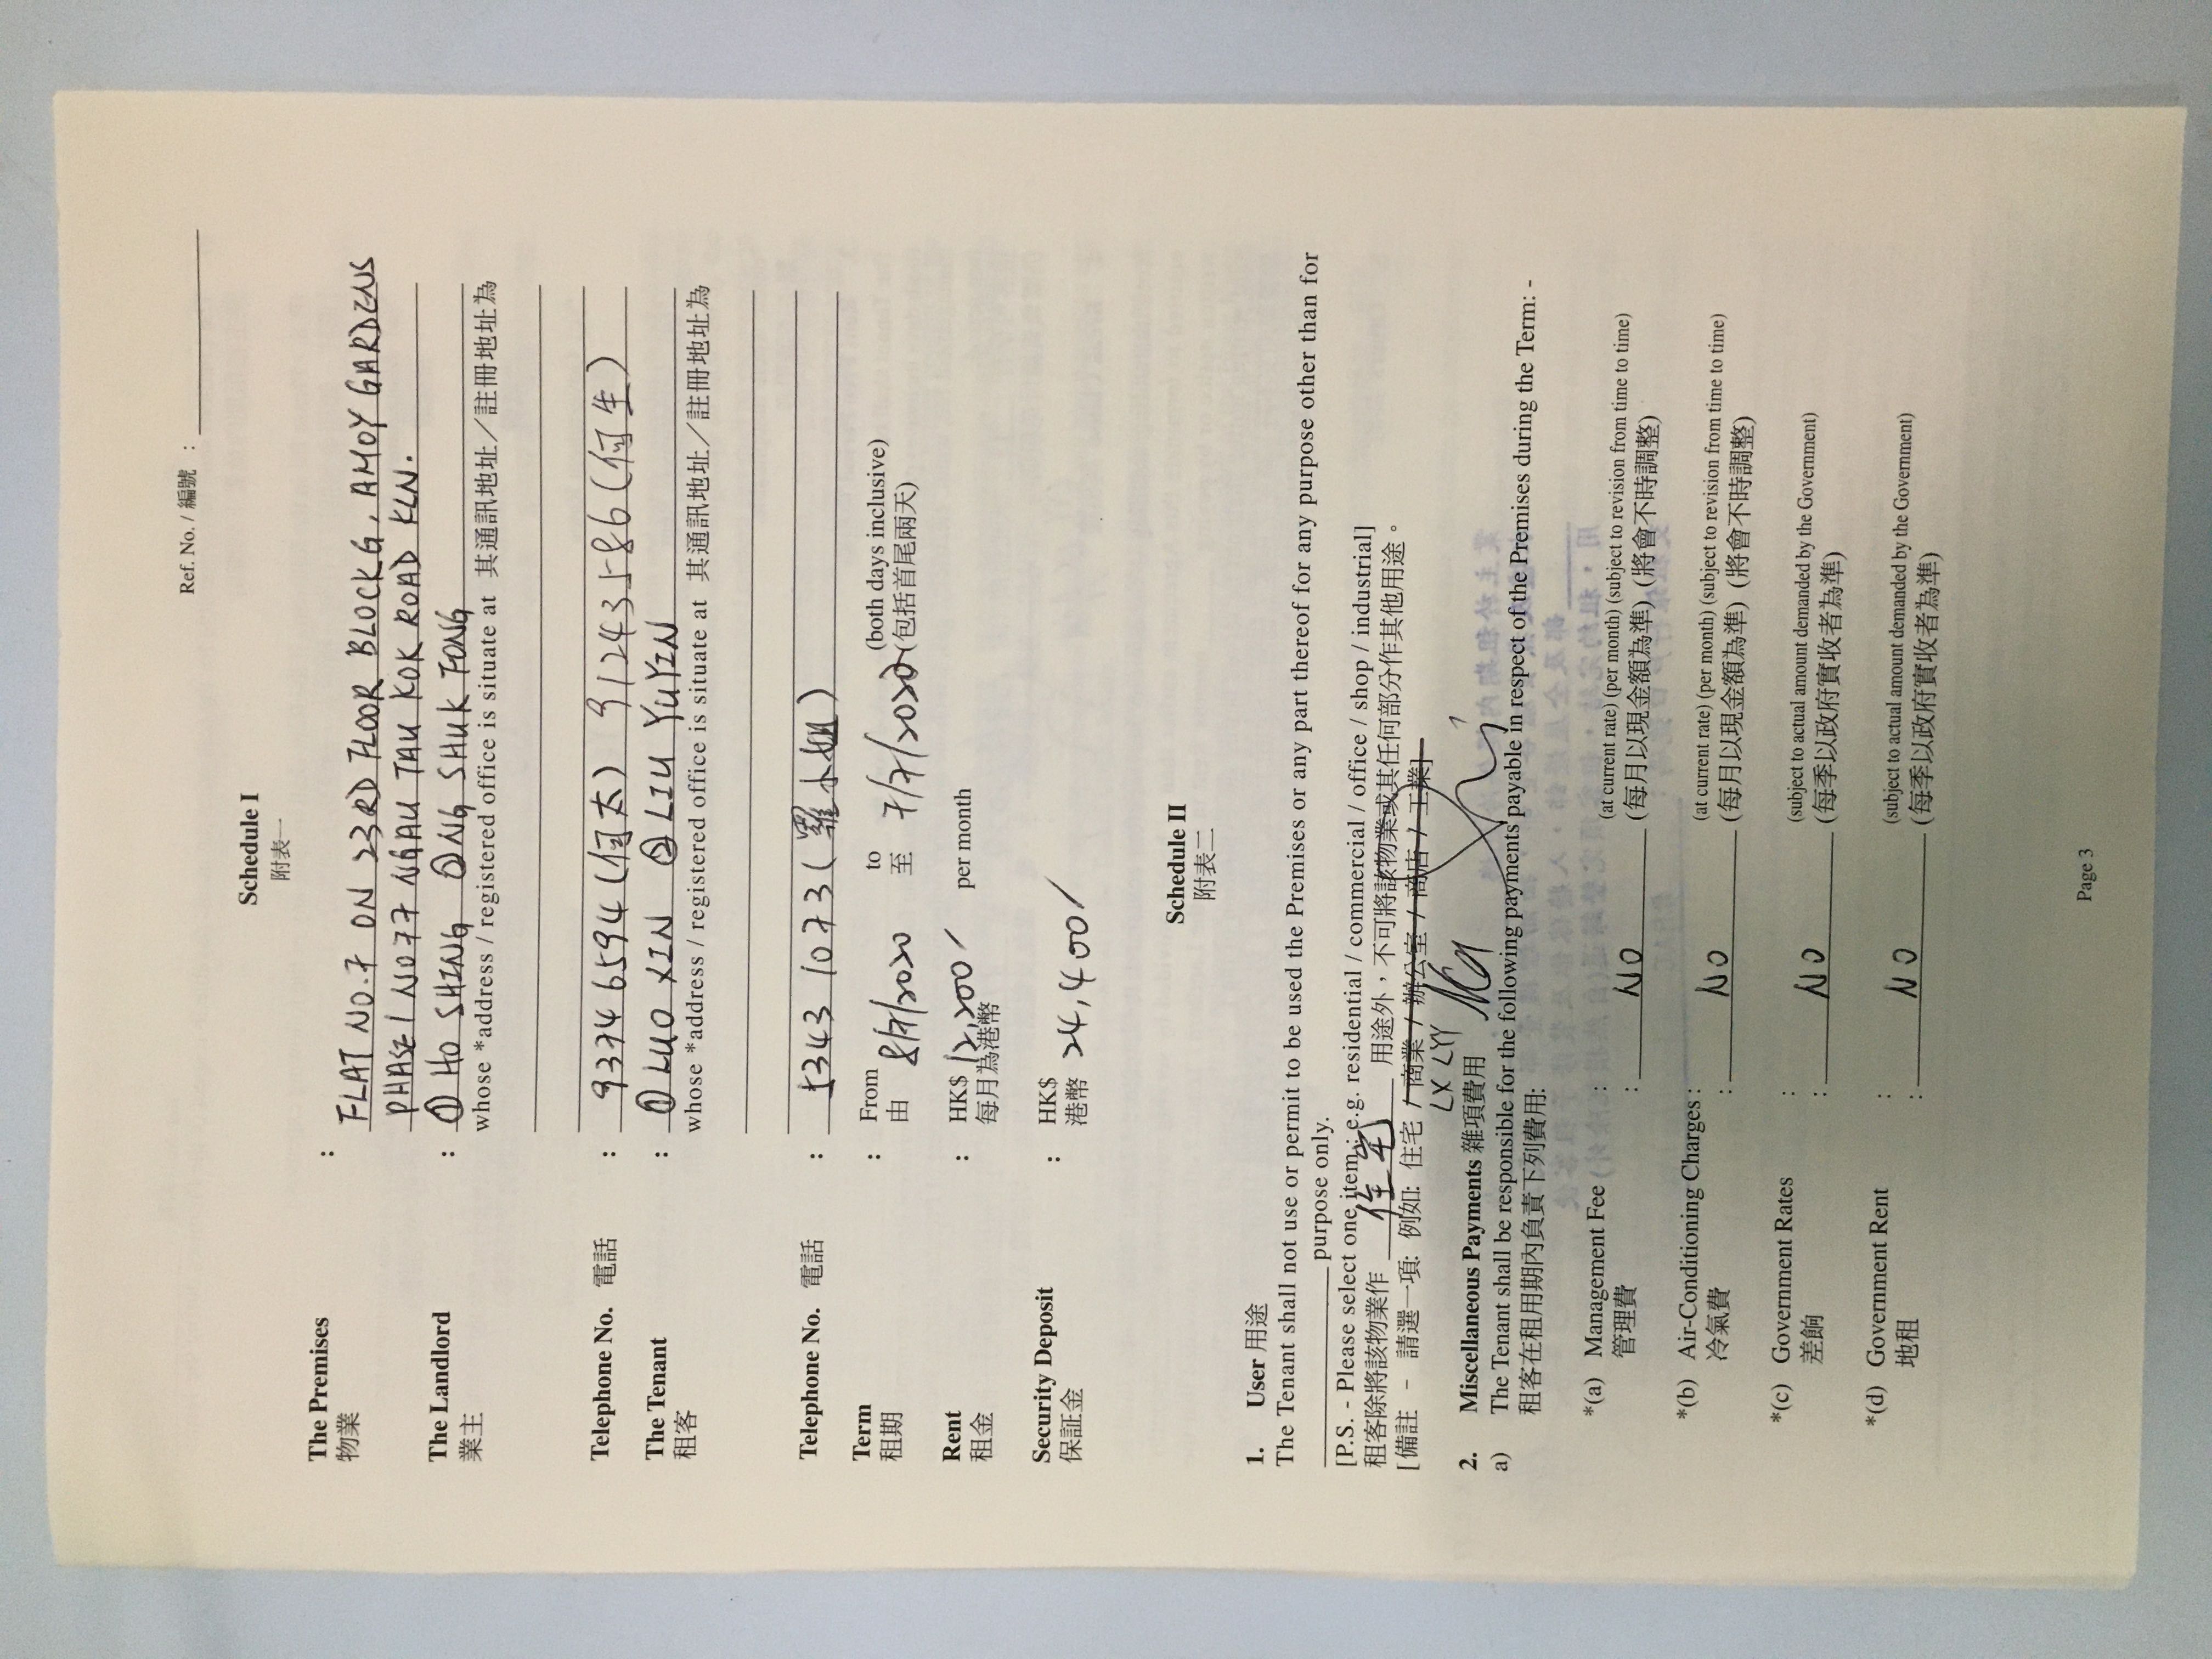 Ref. No. / 編號 :
Schedule I
附表一
The Premises : FLAT NO.7 ON 23RD FLOOR BLOCK G, AMOY GARDENS
物業 PHASE 1 NO77 NGAU TAU KOK ROAD KLN.
The Landlord : ① HO SHING ② NG SHUK FONG
業主 whose *address / registered office is situate at 其通訊地址／註冊地址為
Telephone No. 電話 : 9374 6594 (何太) 9124 3586 (何生)
The Tenant : ① LUO XIN ② LIU YUYIN
租客 whose *address / registered office is situate at 其通訊地址／註冊地址為
Telephone No. 電話 : 5343 1073 (羅小姐)
Term : From 8/7/2020 to 7/7/2022 (both days inclusive)
租期 由 至 (包括首尾兩天)
Rent : HK$ 12,200/ per month
租金 每月為港幣
Security Deposit : HK$ 24,400/
保証金 港幣
Schedule II
附表二
1. User 用途
The Tenant shall not use or permit to be used the Premises or any part thereof for any purpose other than for
purpose only.
[P.S. - Please select one item : e.g. residential / commercial / office / shop / industrial]
租客除將該物業作 住宅 用途外，不可將該物業或其任何部分作其他用途。
[備註 - 請選一項: 例如: 住宅 / 商業 / 辦公室 / 商店 / 工業]
LX LYY
2. Miscellaneous Payments 雜項費用
a) The Tenant shall be responsible for the following payments payable in respect of the Premises during the Term: -
租客在租用期內負責下列費用:
*(a) Management Fee : NO (at current rate) (per month) (subject to revision from time to time)
管理費 : (每月以現金額為準) (將會不時調整)
*(b) Air-Conditioning Charges : NO (at current rate) (per month) (subject to revision from time to time)
冷氣費 : (每月以現金額為準) (將會不時調整)
*(c) Government Rates : NO (subject to actual amount demanded by the Government)
差餉 : (每季以政府實收者為準)
*(d) Government Rent : NO (subject to actual amount demanded by the Government)
地租 : (每季以政府實收者為準)
Page 3